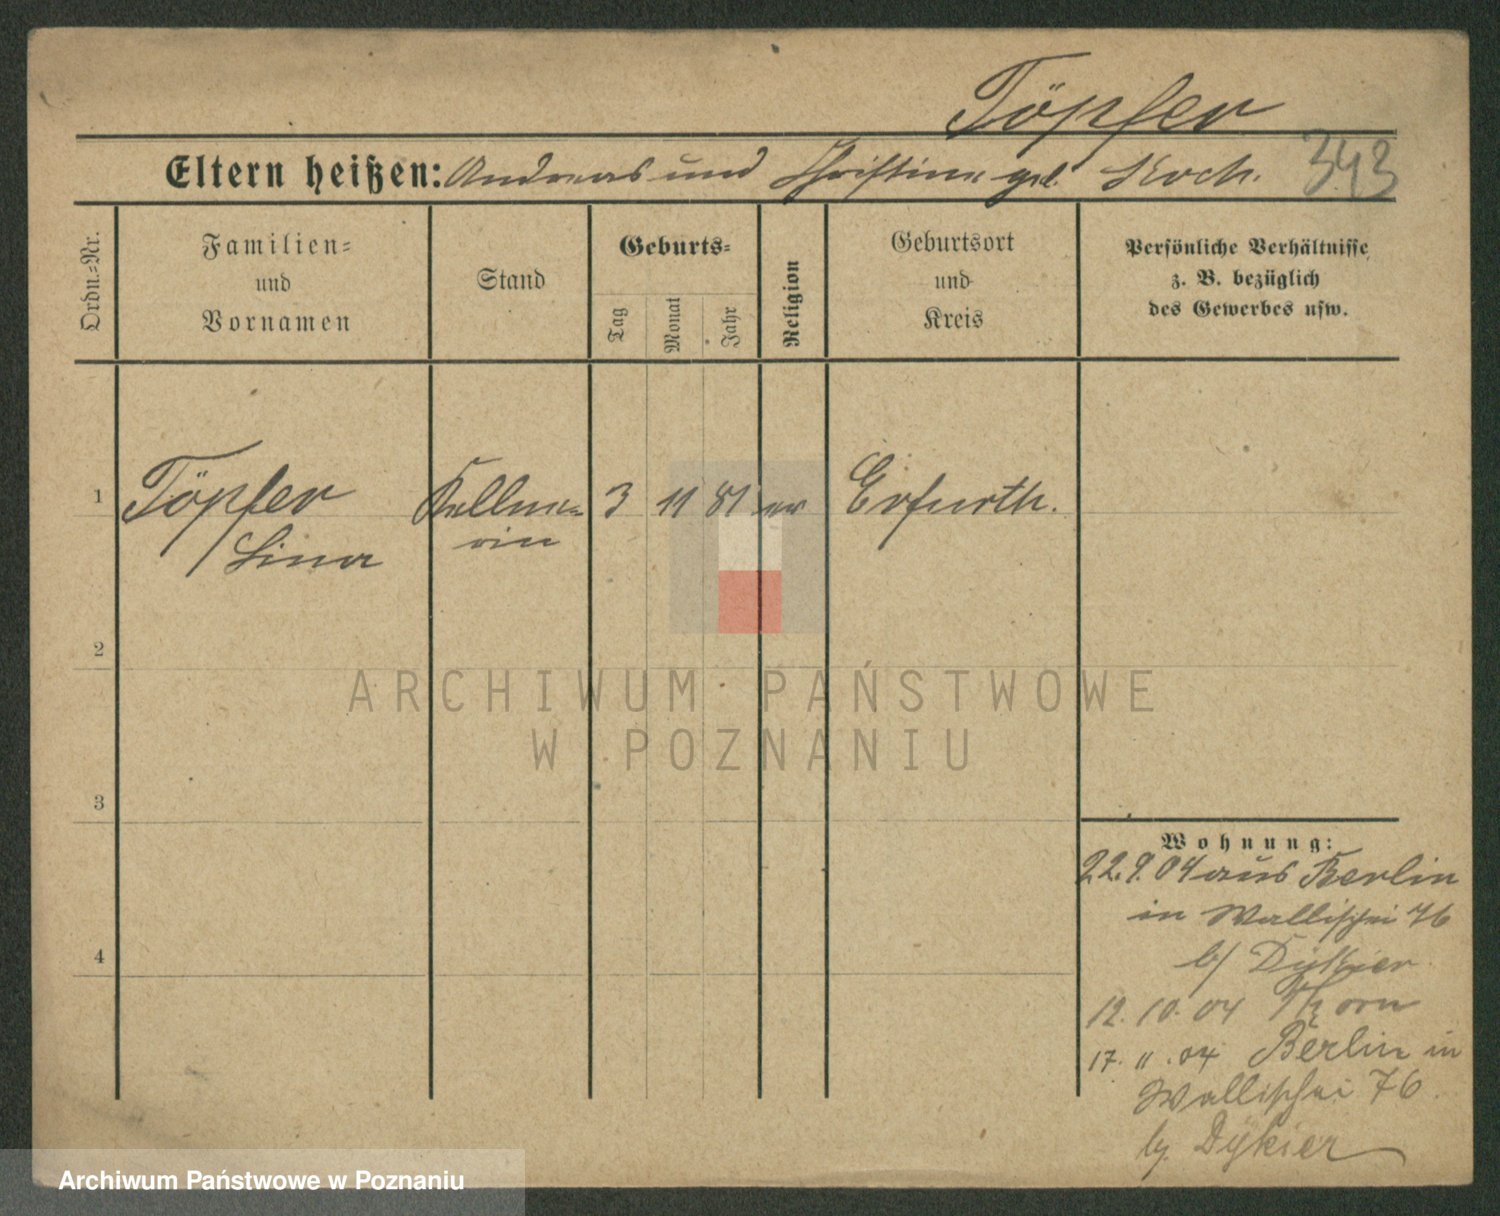 Töpfer
Eltern heißen: Andreas und Christine geb. Koch. 343
Ordn.=Nr.
Familien=
und
Vornamen
Stand
Geburts=
Tag
Monat
Jahr
Religion
Geburtsort
und
Kreis
Persönliche Verhältnisse
z. B. bezüglich
des Gewerbes usw.
1 Töpfer Kellne= 3 11 81 ev Erfurth.
Lina rin
2
3
4
Wohnung:
22.9.04 aus Berlin
in Wallischei 76
b/ Dykier.
12. 10. 04 Thorn
17. 11. 04 Berlin in
Wallischei 76.
b/ Dykier
ARCHIWUM PAŃSTWOWE
W POZNANIU
Archiwum Państwowe w Poznaniu